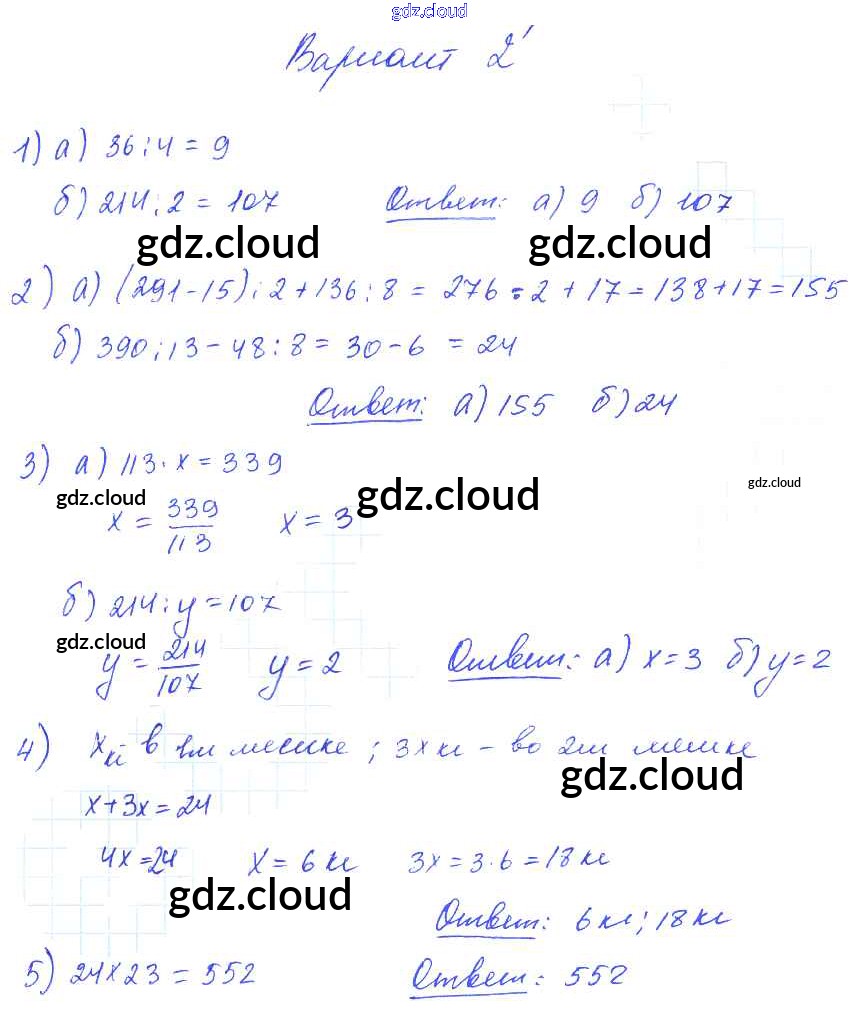 gdz.cloud
Вариант 2
1) а) 36 : 4 = 9
б) 214 : 2 = 107 Ответ: а) 9 б) 107
gdz.cloud gdz.cloud
2) а) (291-15) : 2 + 136 : 8 = 276 : 2 + 17 = 138 + 17 = 155
б) 390 : 13 - 48 : 8 = 30 - 6 = 24
Ответ: а) 155 б) 24
3) а) 113 · x = 339
gdz.cloud gdz.cloud gdz.cloud
x = 339/113 x = 3
б) 214 : y = 107
gdz.cloud
y = 214/107 y = 2 Ответ: а) x = 3 б) y = 2
4) x кг в 1м мешке ; 3x кг - во 2м мешке
gdz.cloud
x + 3x = 24
4x = 24 x = 6 кг 3x = 3 · 6 = 18 кг
gdz.cloud
Ответ: 6 кг ; 18 кг
5) 24 x 23 = 552 Ответ: 552